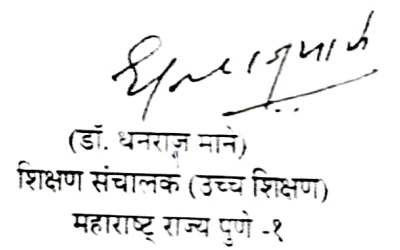 (डॉ. धनराज माने)
शिक्षण संचालक (उच्च शिक्षण)
महाराष्ट्र राज्य पुणे -१